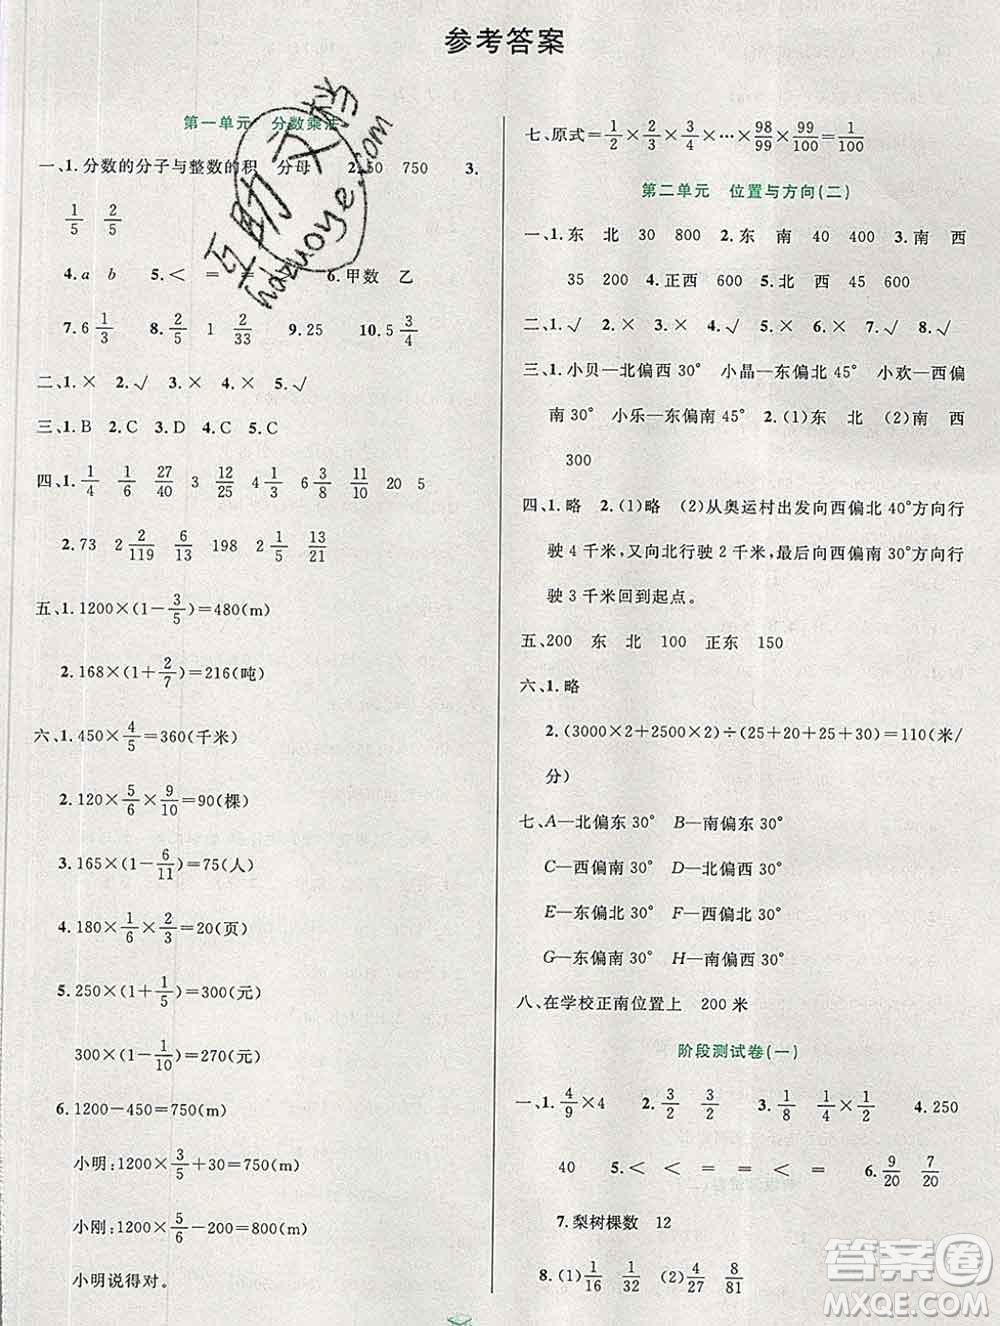 参考答案
第一单元 分数乘法
一、1.分数的分子与整数的积 分母 2.50 750 3.
1/5 2/5
4.a b 5.< = = 6.甲数 乙
7.6 1/3 8.2/5 1 2/33 9.25 10.5 3/4
二、1.× 2.√ 3.× 4.× 5.√
三、1.B 2.C 3.D 4.C 5.C
四、1.1/4 1/6 27/40 3 12/25 1/3 6 3/8 11/10 20 5
2.73 2 2/119 6/13 198 2 1/5 13/21
五、1.1200×(1-3/5)=480(m)
2.168×(1+2/7)=216(吨)
六、1.450×4/5=360(千米)
2.120×5/6×9/10=90(棵)
3.165×(1-6/11)=75(人)
4.180×1/6×2/3=20(页)
5.250×(1+1/5)=300(元)
300×(1-1/10)=270(元)
6.1200-450=750(m)
小明:1200×3/5+30=750(m)
小刚:1200×5/6-200=800(m)
小明说得对。
七、原式=1/2×2/3×3/4×…×98/99×99/100=1/100
第二单元 位置与方向(二)
一、1.东 北 30 800 2.东 南 40 400 3.南 西
35 200 4.正西 5.北 西 45 600
二、1.√ 2.× 3.× 4.√ 5.√ 6.× 7.√ 8.√
三、1.小贝—北偏西30° 小晶—东偏北45° 小欢—西偏
南30° 小乐—东偏南45° 2.(1)东 北 (2)南 西
300
四、1.略 2.(1)略 (2)从奥运村出发向西偏北40°方向行
驶4千米,又向北行驶2千米,最后向西偏南30°方向行
驶3千米回到起点。
五、200 东 北 100 正东 150
六、1.略
2.(3000×2+2500×2)÷(25+20+25+30)=110(米/
分)
七、A—北偏东30° B—南偏东30°
C—西偏南30° D—北偏西30°
E—东偏北30° F—西偏北30°
G—东偏南30° H—南偏西30°
八、在学校正南位置上 200米
阶段测试卷(一)
一、1.4/9×4 2.3/2 3/2 3.1/8 1/4×1/2 4.250
40 5.< < = = < = 6.9/20 7/20
7.梨树棵数 12
8.(1)1/16 1/32 (2)4/27 8/81
互助文档
hdzuoye.com
答案圈
MXQE.COM